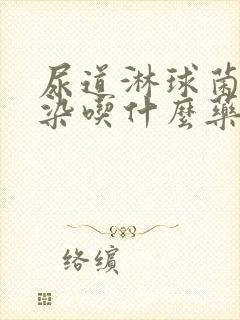 尿道淋球菌
染喫什麼藥
络缤